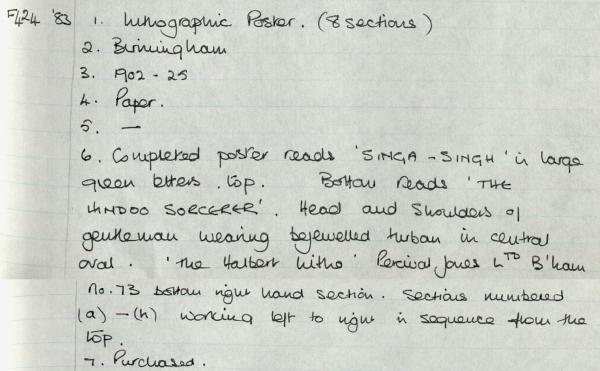 F424 '83 1. Lithographic Poster. (8 sections)
2. Birmingham
3. 1902 - 25
4. Paper.
5. —
6. Completed poster reads 'SINGA - SINGH' in large
green letters. top. Bottom reads 'THE
HINDOO SORCERER'. Head and Shoulders of
gentleman wearing bejewelled turban in central
oval. 'The Halbert Litho' Percival Jones LTD B'ham
No. 73 bottom right hand section. Sections numbered
(a) – (h) working left to right in sequence from the
top.
7. Purchased.